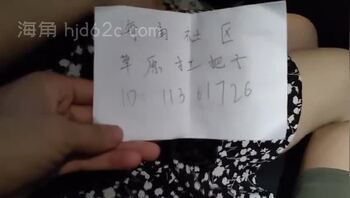 海角 hjd62c.com
海角社区
草原扛把子
ID: 11361726